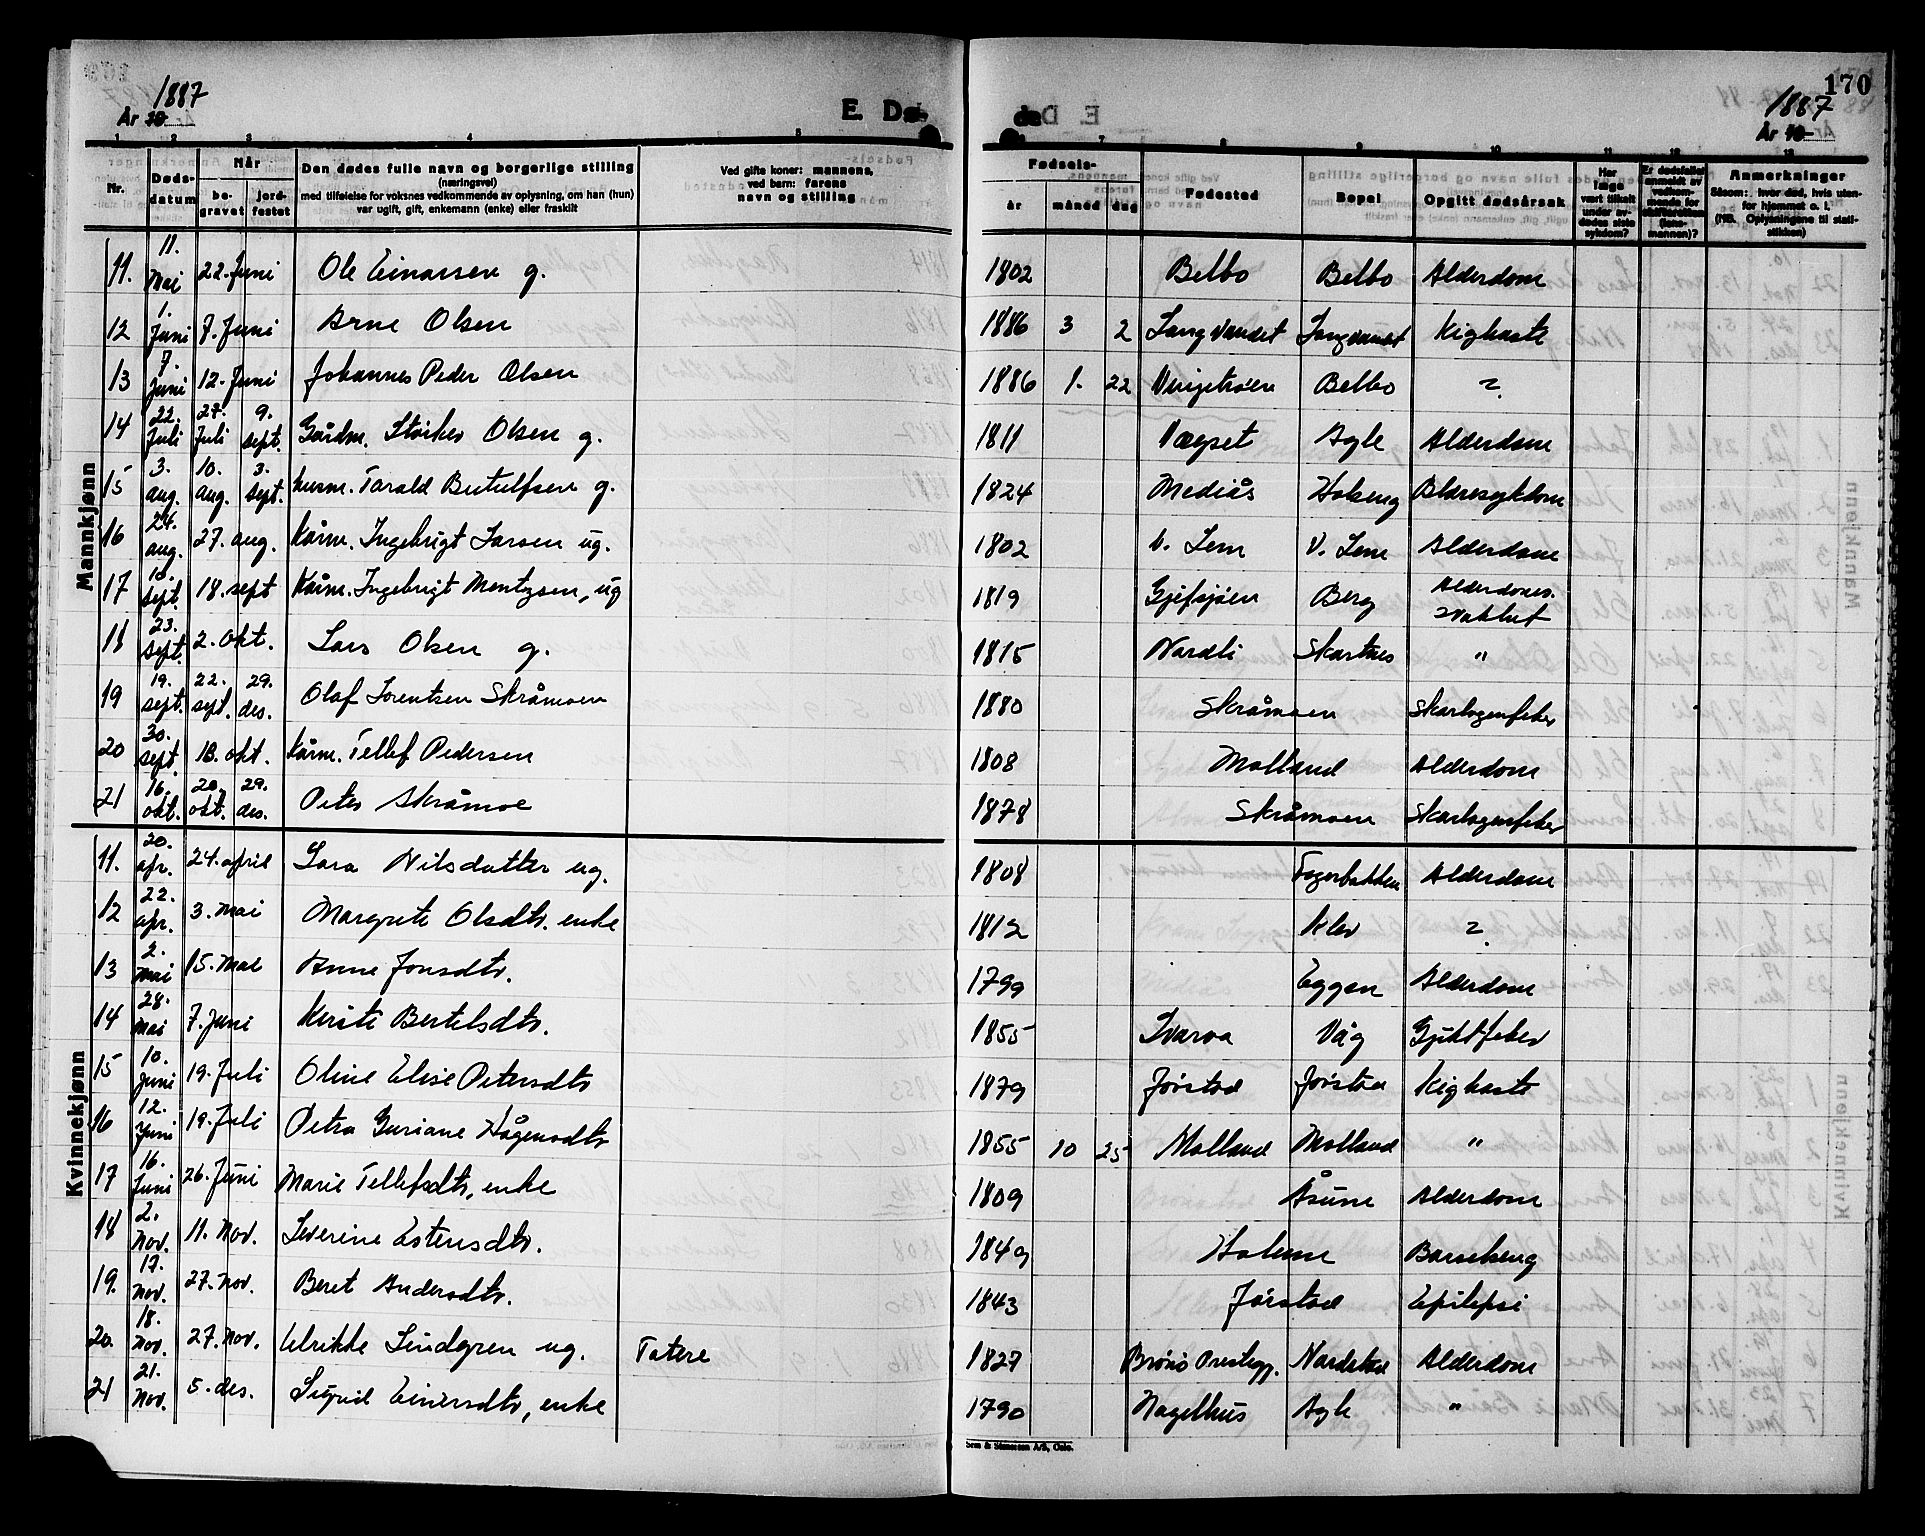 1887
År 18
E. Dø-
de
170
1887
År 18
1 2 3 4 5
7 8 9 10 11 12 13
Nr. Døds-datum Når be-gravet jord-festet Den dødes fulle navn og borgerlige stilling (næringsvei) med tilføielse for voksnes vedkommende av oplysning, om han (hun) var ugift, gift, enkemann (enke) eller fraskilt Ved gifte koner: mannens, ved barn: farens navn og stilling
Fødsels- år måned dag Fødested Bopel Opgitt dødsårsak Har læge vært tilkalt under av-dødes siste sykdom? Er dødsfallet anmeldt av vedkom-mende for skifteretten (lens-mannen)? Anmerkninger Såsom: hvor død, hvis uten-for hjemmet o. l. (NB. Oplysningene til stati-stikken)
Mannkjønn
11. 11. Mai 22. Juni Ole Einarsen g. 1802 Belbo Belbo Alderdom
12 1. Juni 7. Juni Arne Olsen 1886 3 2 Langvandet Langvandet Kighoste
13 7. Juni 12. Juni Johannes Peder Olsen 1886 1. 22 Vingetrøen Belbo ?
14 22. Juli 27. Juli 9. sept. Gårdm. Storker Olsen g. 1811 Vægset Agle Alderdom
15 3. aug. 10. aug. 3. sept. husm. Tarald Butulfsen g. 1824 Mediås Holseng Blæresykdom
16 24. aug. 27. aug. Kårm. Ingebrigt Larsen ug. 1802 V. Lem V. Lem Alderdom
17 10. sept. 18. sept Kårm. Ingebrigt Mentzsen, ug 1819 Gjefsjøen Berg Alderdoms. svakhet
18 23. sept. 2. Okt. Lars Olsen g. 1815 Nordli Skartnes "
19 19. sept. 22. sept. 29. des. Olaf Lorentsen Skråmoen 1880 Skråmoen Skarlagenfeber
20 30. sept. 18. okt. Kårm. Tellef Pedersen 1808 Molland Alderdom
21 16. okt. 20. okt. 29. des. Peter Skråmoe 1878 Skråmoen Skarlagenfeber
Kvinnekjønn
11. 20. apr. 24. april Sara Nilsdatter ug. 1808 Fagerbakken Alderdom
12 22. apr. 3. Mai Margrete Olsdtr. enke 1812 Klev ?
13 2. Mai 15. Mai Anne Jonsdtr. 1799 Eggen Alderdom
14 28. Mai 7. Juni Kirste Bertelsdtr. 1855 Ivarva Våg Gjiktfeber
15 10. Juni 19. Juli Oline Elise Petersdtr 1879 Jørstad Jørstad Kighoste
16 12. Juni 19. Juli Petra Guriane Hågensdtr 1855 10 25 Molland Molland "
17 16. Juni 26. Juni Marie Tellefsdtr, enke 1809 Åsune Alderdom
18 2. Nov. 11. Nov. Severine Estensdtr. 1849 Holmen Barselseng
19. 17. Nov. 27. Nov. Beret Andersdtr. 1843 Jørstad Epilepsi
20. 18. Nov. 27. Nov. Ulrikke Lindgren ug. Tatere 1827 Brønø Prestegj. Nordstad Alderdom
21 21. Nov. 5. des. Sigrid Einersdtr, enke 1790 Nagelhus Agle "
Sem & Stenersen A/S, Oslo.